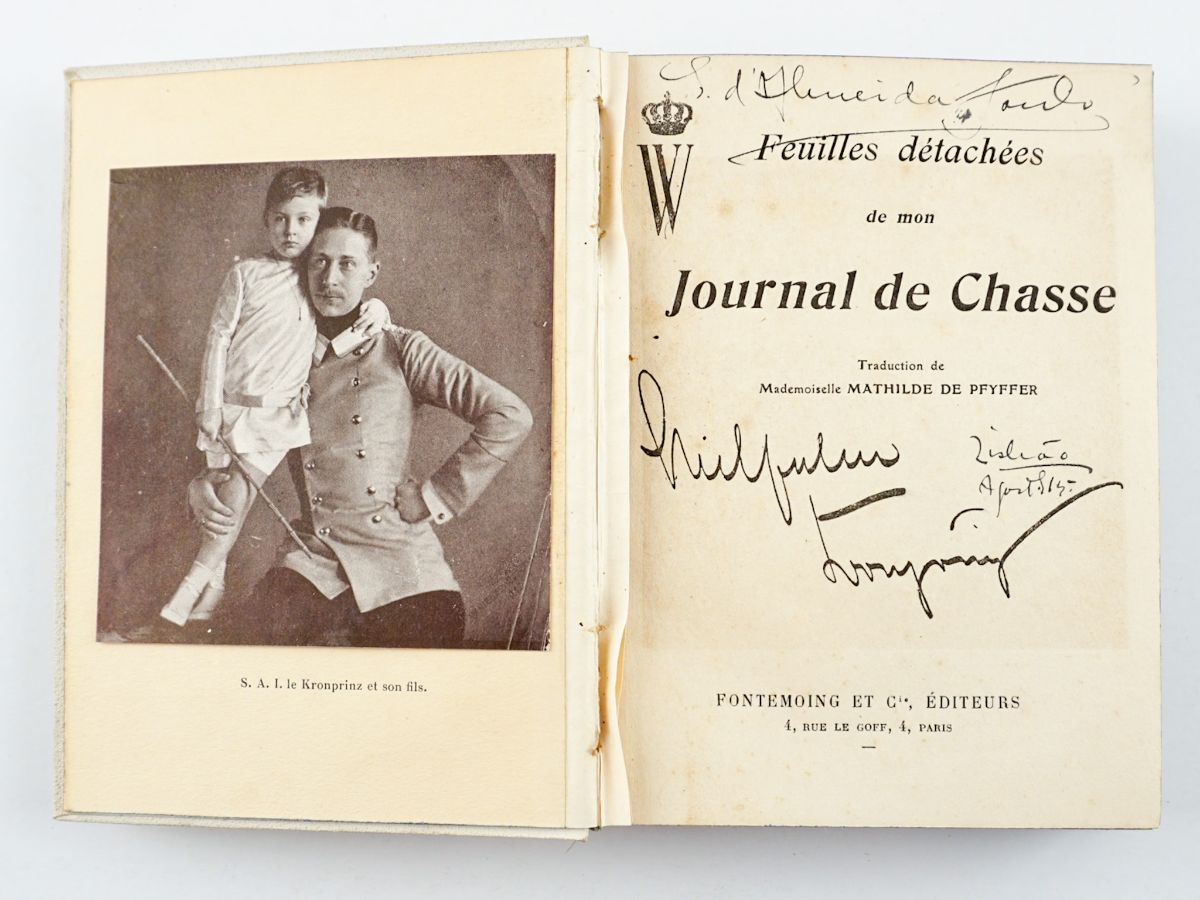 S. A. I. le Kronprinz et son fils.
S. d'Almeida
W
Feuilles détachées
de mon
Journal de Chasse
Traduction de
Mademoiselle MATHILDE DE PFYFFER
Wilhelm
Kronprinz
FONTEMOING ET Cie, ÉDITEURS
4, RUE LE GOFF, 4, PARIS